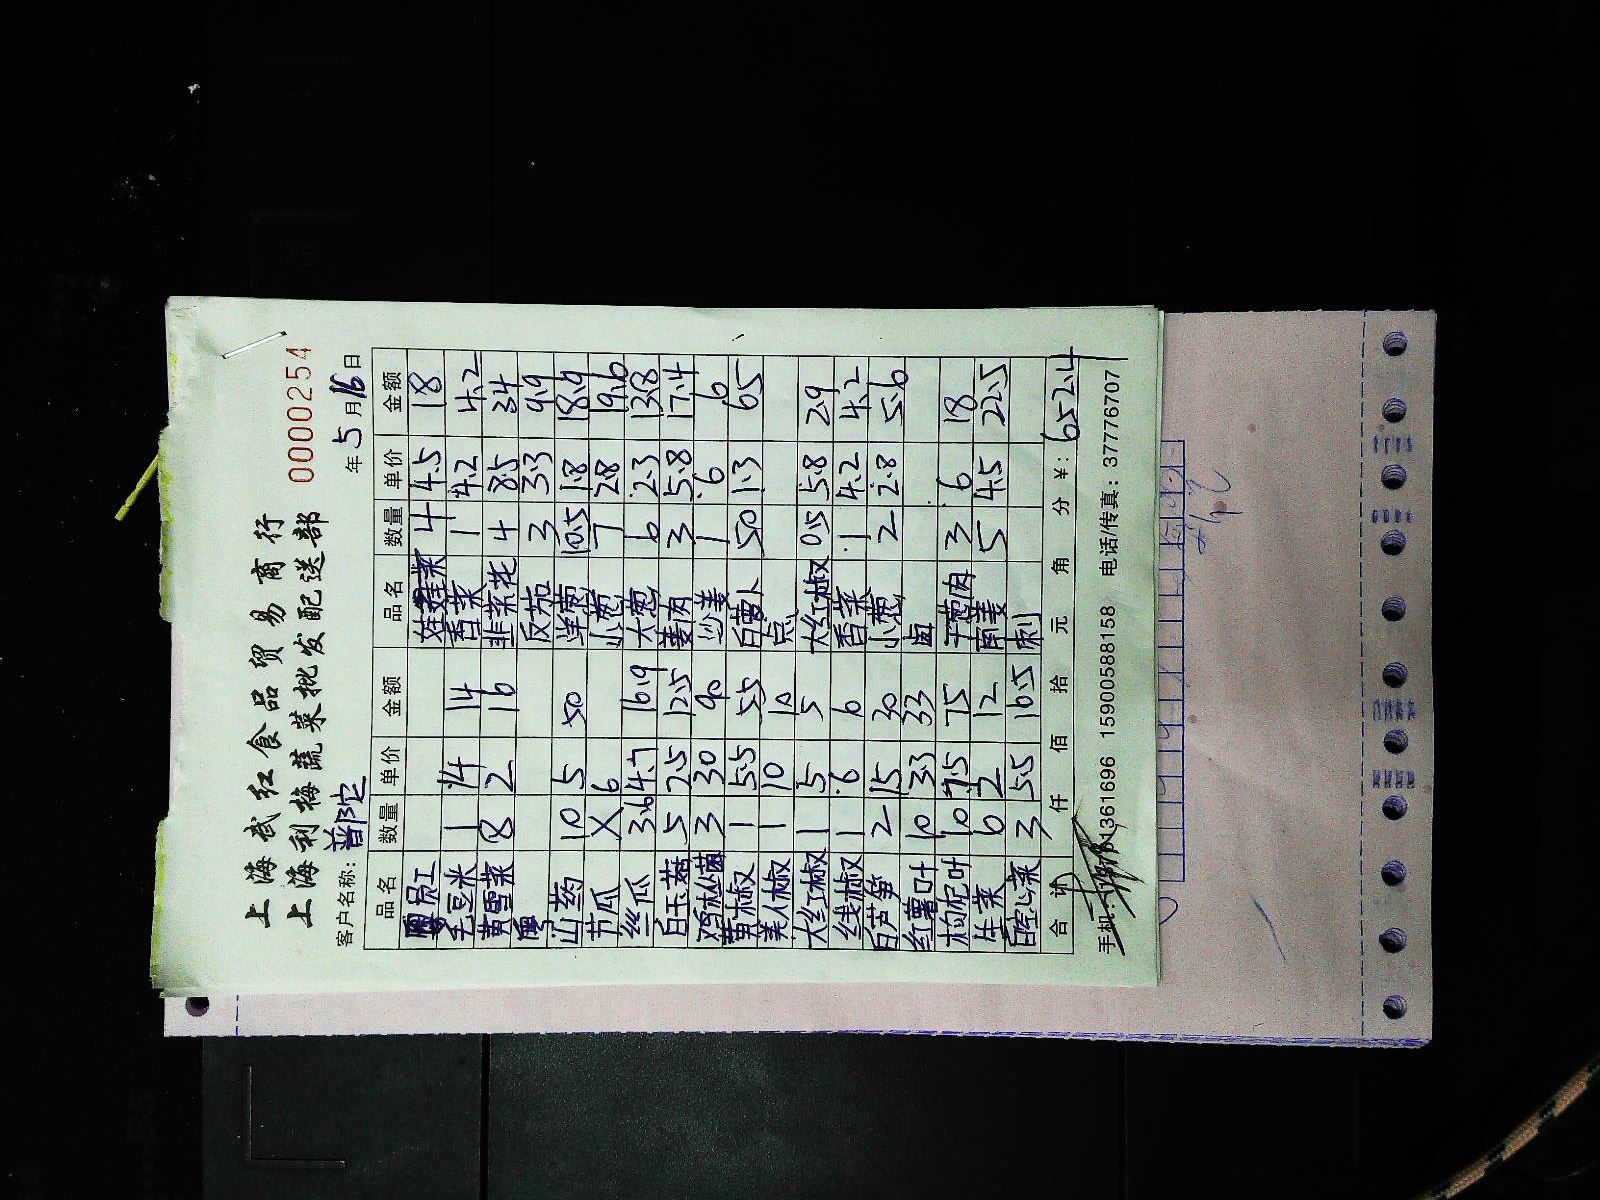 上海武红食品贸易商行
上海利梅蔬菜批发配送部 0000254
客户名称: 普陀 年 5 月 16 日
品名 数量 单价 金额 品名 数量 单价 金额
员工 娃娃菜 4 4.5 18
毛豆米 1 14 14 香菜 1 4.2 4.2
黄雪菜 8 2 16 韭菜花 4 8.5 34
反茄 3 3.3 9.9
山药 10 5 50 洋葱 10.5 1.8 18.9
苦瓜 X 6 小葱 7 2.8 19.6
丝瓜 3.6 4.7 16.9 大葱 6 2.3 13.8
白玉菇 5 2.5 12.5 姜肉 3 5.8 17.4
鸡枞菌 3 30 90 沙姜 1 6 6
黄椒 1 5.5 5.5 白萝卜 50 1.3 65
美人椒 1 10 10 点
大红椒 1 5 5 大红椒 0.5 5.8 2.9
线椒 1 6 6 香菜 1 4.2 4.2
白芦笋 2 15 30 小葱 2 2.8 5.6
红薯叶 10 3.3 33 卤
枸杞叶 10 7.5 75 干葱肉 3 6 18
生菜 6 2 12 南姜 5 4.5 22.5
空心菜 3 5.5 16.5 刺
合计 仟 佰 拾 元 角 分 ¥: 652.4
手机: 13361361696 15900588158 电话/传真: 37776707